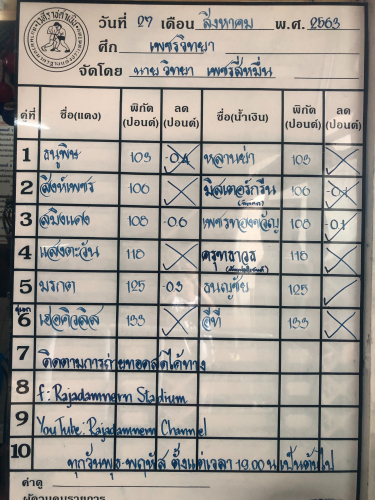 วันที่ 27 เดือน สิงหาคม พ.ศ. 2563
ศึก เพชรวิทยา
จัดโดย นายวิทยา เพชรสี่หมื่น
คู่ที่ ชื่อ(แดง) พิกัด (ปอนด์) ลด (ปอนด์) ชื่อ(น้ำเงิน) พิกัด (ปอนด์) ลด (ปอนด์)
1 ธนูพิษ 103 -0.4 หลานย่า 103
2 สิงห์เพชร 106 มิสเตอร์กรีน 106 -0.1
3 สมิงแดง 108 -0.6 เพชรทองขวัญ 108 -0.1
4 แสงตะวัน 118 ครุฑธาวุธ 118
5 มรกต 125 -0.3 ธนญชัย 125
คู่เอก
6 เฮอคิวลิส 133 อีที 133
7 ติดตามการถ่ายทอดสดได้ทาง
8 f: Rajadamnern Stadium
9 YouTube: Rajadamnern Channel
10 ทุกวันพุธ-พฤหัส ตั้งแต่เวลา 19.00 น เป็นต้นไป
ค่าดู
ผู้ควบคุมรายการ